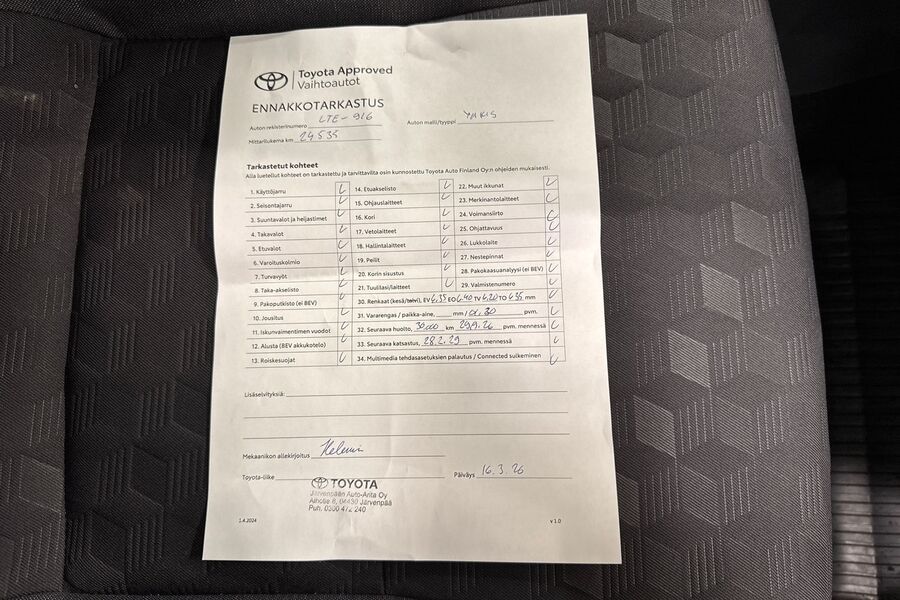 Toyota Approved
Vaihtoautot
ENNAKKOTARKASTUS
Auton rekisterinumero LTE-916 Auton malli/tyyppi YARIS
Mittarilukema km 24535
Tarkastetut kohteet
Alla luetellut kohteet on tarkastettu ja tarvittavilta osin kunnostettu Toyota Auto Finland Oy:n ohjeiden mukaisesti.
1. Käyttöjarru
2. Seisontajarru
3. Suuntavalot ja heijastimet
4. Takavalot
5. Etuvalot
6. Varoituskolmio
7. Turvavyöt
8. Taka-akselisto
9. Pakoputkisto (ei BEV)
10. Jousitus
11. Iskunvaimentimien vuodot
12. Alusta (BEV akkukotelo)
13. Roiskesuojat
14. Etuakselisto
15. Ohjauslaitteet
16. Kori
17. Vetolaitteet
18. Hallintalaitteet
19. Peilit
20. Korin sisustus
21. Tuulilasi/laitteet
22. Muut ikkunat
23. Merkinantolaitteet
24. Voimansiirto
25. Ohjattavuus
26. Lukkolaite
27. Nestepinnat
28. Pakokaasuanalyysi (ei BEV)
29. Valmistenumero
30. Renkaat (kesä/talvi), EV 6,35 EO 6,40 TV 6,20 TO 6,35 mm
31. Vararengas / paikka-aine, mm / 30 pvm.
32. Seuraava huolto, 30000 km 29.9.26 pvm. mennessä
33. Seuraava katsastus, 28.2.29 pvm. mennessä
34. Multimedia tehdasasetuksien palautus / Connected sulkeminen
Lisäselvityksiä:
Mekaanikon allekirjoitus
Toyota-liike Päiväys 16.3.26
TOYOTA
Järvenpään Auto-Arita Oy
Alhotie 8, 04430 Järvenpää
Puh. 0300 472 240
1.4.2024 v 1.0